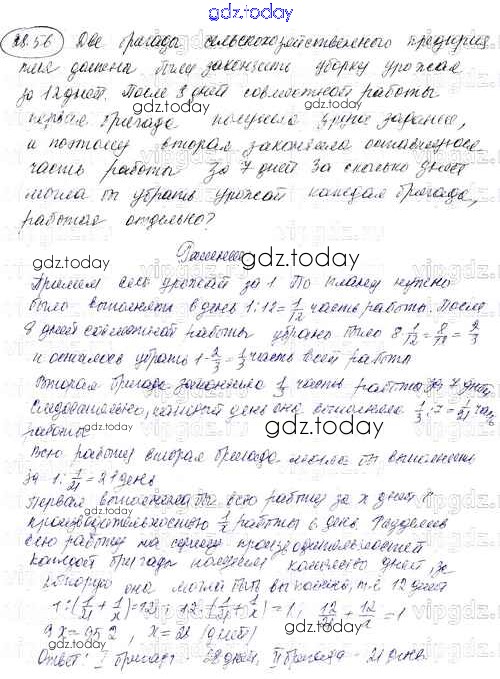 gdz.today
28.56 Две бригады сельскохозяйственного предприя
тия должна были закончить уборку урожая
за 12 дней. После 8 дней совместной работы
gdz.today
первая бригада получила другое задание,
и поэтому вторая закончила оставшуюся
часть работы за 7 дней За сколько дней
могла бы убрать урожай каждая бригада,
работая отдельно?
Решение
gdz.today
Примем весь урожай за 1 По плану нужно
было выполнять в день 1:12 = 1/12 часть работы. После
8 дней совместной работы убрано было 8·1/12 = 8/12 = 2/3
и осталось убрать 1-2/3 = 1/3 часть всей работы
Вторая бригада закончила 1/3 часть работы за 7 дней
Следовательно, каждый день она выполняла 1/3:7 = 1/21 часть
работы
gdz.today
Всю работу вторая бригада могла бы выполнить
за 1:1/21 = 21 день
Первая выполнила бы всю работу за x дней с
производительностью 1/x работы в день. Разделив
всю работу на сумму производительностей
каждой бригады получим количество дней, за
которую она могла быть выполнена, т.е 12 дней
1:(1/21+1/x)=12; 12·(1/21+1/x)=1; 12/21+12/x=1
9x=252, x=28 (дней)
gdz.today
Ответ: I бригада - 28 дней, II бригада - 21 день